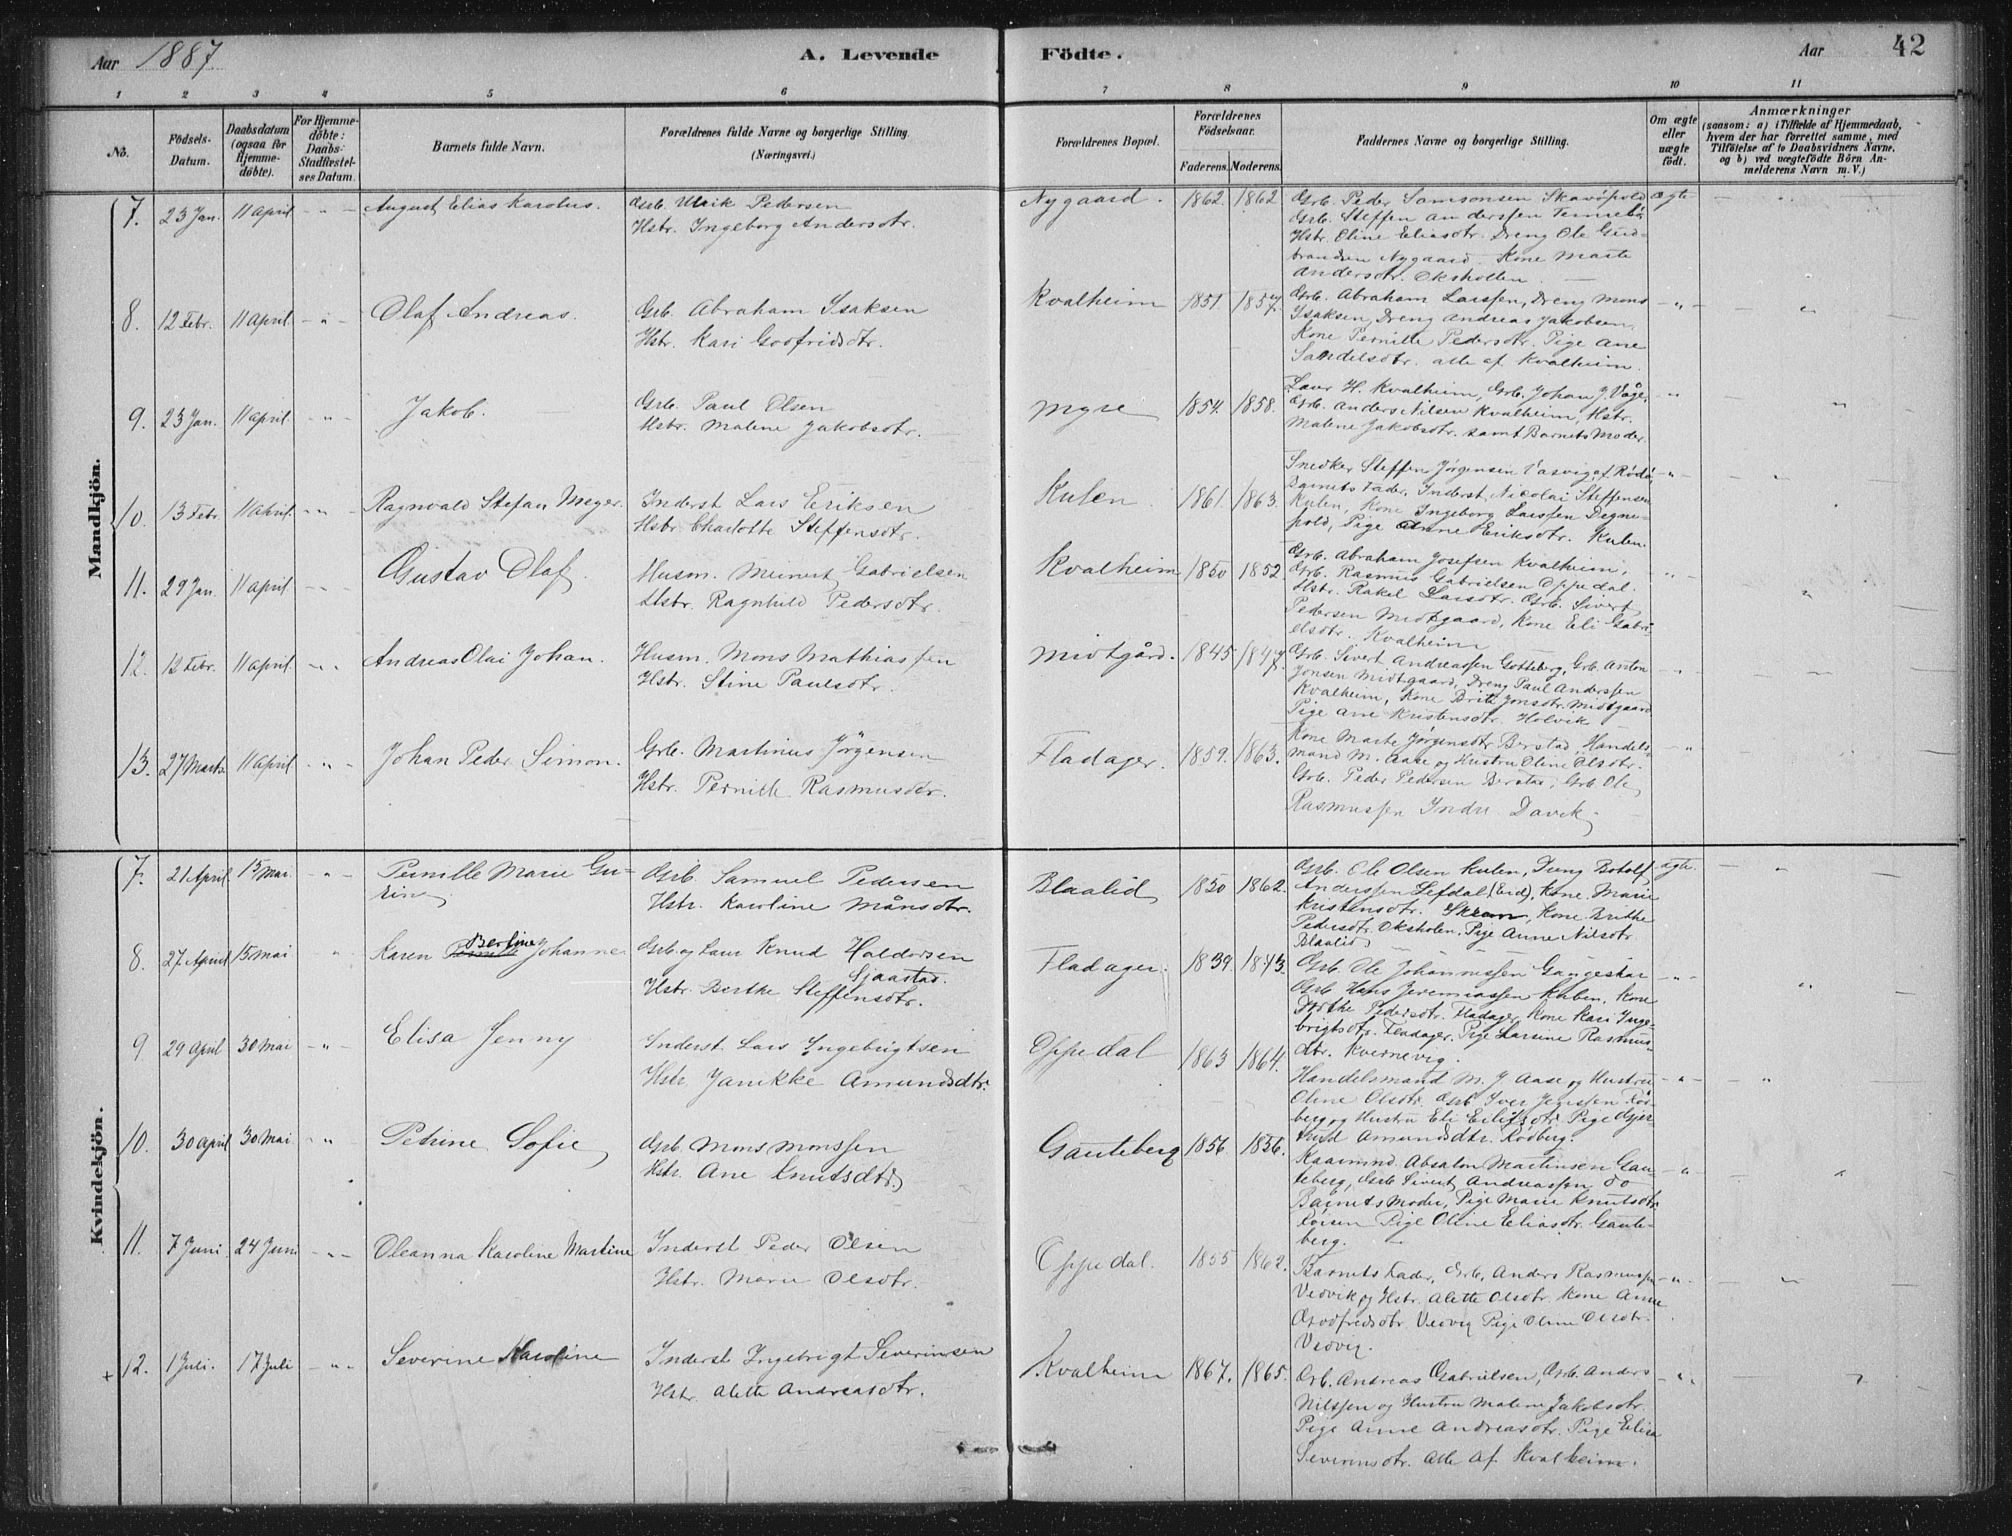 Aar 1887 A. Levende Födte. Aar 42
1 2 3 4 5 6 7 8 9 10 11
No. Födsels-Datum. Daabsdatum (ogsaa for Hjemme-döbte). For Hjemme-döbte: Daabs-Stadfæstel-ses Datum. Barnets fulde Navn. Forældrenes fulde Navne og borgerlige Stilling. (Næringsvei.) Forældrenes Bopæl. Forældrenes Födselsaar. Faderens. Moderens. Faddernes Navne og borgerlige Stilling. Om ægte eller uægte födt. Anmærkninger (saasom: a) i Tilfælde af Hjemmedaab, hvem der har forrettet samme, med Tilföielse af to Daabsvidners Navne, og b) ved uægtefödte Börn An-melderens Navn m. V.)
Mandkjön.
7. 23 Jan. 11 April - " - August Elias Karolus. Grb. Ulrik Pedersen
Hstr. Ingeborg Andersdtr.
Nygaard. 1862. 1862
Grb. Peder Samsonsen Skavöpold ægte
Grb. Steffen Anderssen
Hstr. Oline Eliasdtr. Dreng Ole Gud-
brandsen Nygaard. Kone Marte
Andersdtr. Oksholen
8. 12 Febr. 11 April - " - Olaf Andreas. Grb. Abraham Isaksen
Hstr. Kari Godfridsdtr.
Kvalheim 1851. 1857.
Grb. Abraham Larssen, Dreng Mons - " -
Isaksen, Dreng Andreas Jakobsen,
Kone Pernille Pedersdtr. Pige Ane
Sandelsdtr. alle af Kvalheim.
9. 23 Jan. 11 April. - " - Jakob. Grb. Paul Olsen
Hstr. Malene Jakobsdtr.
Myre 1854. 1858.
Laur H. Kvalheim, Grb. Johan J. Våge, "
Grb. Anders Nilsen Kvalheim, Hstr.
Malene Jakobsdtr. samt Barnets Moder.
10. 13 Febr. 11 April. - " - Ragnvald Stefan Meyer. Inderst Lars Eriksen
Hstr. Charlotte Steffensdtr.
Kulen 1861. 1863.
Snedker Steffen Jørgensen Vasvig af - " -
Barnets Fader, Inderst Nicolai Steffensen
Kulen, Kone Ingeborg Larssen Degne-
pold, Pige Anne Eriksdtr. Kulen.
11. 29 Jan. 11 April - " - Gustav Olaf. Husm. Meinert Gabrielsen
Hstr. Ragnhild Pedersdtr.
Kvalheim 1850 1852
Grb. Abraham Josefsen Kvalheim,
Grb. Rasmus Gabrielsen Oppedal.
Hstr. Rakel Larsdtr. Grb. Sivert
Pedersen Midtgaard, Kone Eli Gabri
elsdtr. Kvalheim
12. 12 Febr. 11 April. - " - Andreas Olai Johan. Husm. Mons Mathiassen
Hstr. Stine Paulsdtr.
Midtgård. 1845 1847.
Grb. Sivert Andreassen Gotteberg, Grb. Anton
Jonsen Midtgaard, Dreng Paul Anderssen
Kvalheim, Kone Brite Jonsdtr. Midtgaard
Pige Ane Kristensdtr. Holvik
13. 27 Marts. 11 April - " - Johan Peder Simon. Grb. Martinus Jørgensen
Hstr. Pernille Rasmusdtr.
Fladager. 1859. 1863.
Kone Marte Jørgensdtr Berstad, Handels-
mand M. Aase og Hustru Oline Olsdtr.
Grb. Peder Pedersen Berstad, Grb. Ole
Rasmussen Indre Davik
Kvindekjön.
7. 21 April. 15 Mai. - " - Pernille Marie Gu-
rine
Grb. Samuel Pedersen
Hstr. Karoline Månsdtr.
Blaalid 1850 1862.
Grb. Ole Olsen Kulen, Dreng Botolf ægte.
Anderssen Lefdal (Eid), Kone Marie
Kristensdtr. , Kone Brithe
Pedersdtr. Oksholen, Pige Anne Nilsdtr
Blaalid
8. 27 April 15 Mai " Karen Bertine Johanne Grb. og Laur Knud Haldorsen
Sjaastad.
Hstr. Berthe Steffensdtr.
Fladager. 1839. 1843.
Grb. Ole Johannessen Gangeskar - " -
Grb Hans Jeremiassen Kulen. Kone
Dorthe Pedersdtr. Fladager, Kone Kari Inge-
brigtsdtr. Fladager, Pige Larsine Rasmus-
dtr. Kvernevig.
9 29 April 30 Mai - " - Elisa Jenny Inderst Lars Ingebrigtsen
Hstr. Janikke Amundsdtr.
Oppedal 1863 1864.
Handelsmand M. J. Aase og Hustru - " -
Oline Olsdtr. Grb Iver Rød-
berg og Hustru Eli Eilifsdtr. Pige Gjer
trud Amundsdtr. Rødberg.
10. 30 April 30 Mai " Petrine Sofie Grb. Mons Monssen
Hstr. Ane Knutsdtr.
Gauteberg 1856. 1856.
Absalon Martinsen Gau - " -
teberg, Grb Sivert Andreassen do
Barnets Moder, Pige Marie Knutsdtr
Pige Oline Eliasdtr. Gaute-
berg.
11. 7 Juni 24 Juni - " - Oleanna Karoline Martine Inderst Peder Olsen
Hstr. Marie Olsdtr.
Oppedal. 1855 1862.
Barnets Fader, Grb. Anders Rasmussen - " -
Vedvik og Hstr. Alette Olsdtr. Kone Anne
Godfredsdtr Vedvig Pige Oline Olsdtr.
Vedvig.
+ 12. 1 Juli. 17 Juli - " - Severine Karoline Inderst Ingebrigt Severinsen
Hstr. Alette Andreasdtr.
Kvalheim 1867. 1865.
Grb. Andreas Gabrielsen, Grb. Anders - " -
Nilssen og Hustru Malene Jakobsdtr.
Pige Anne Andreasdtr. Pige Elisa
Severinsdtr. Alle Af Kvalheim.